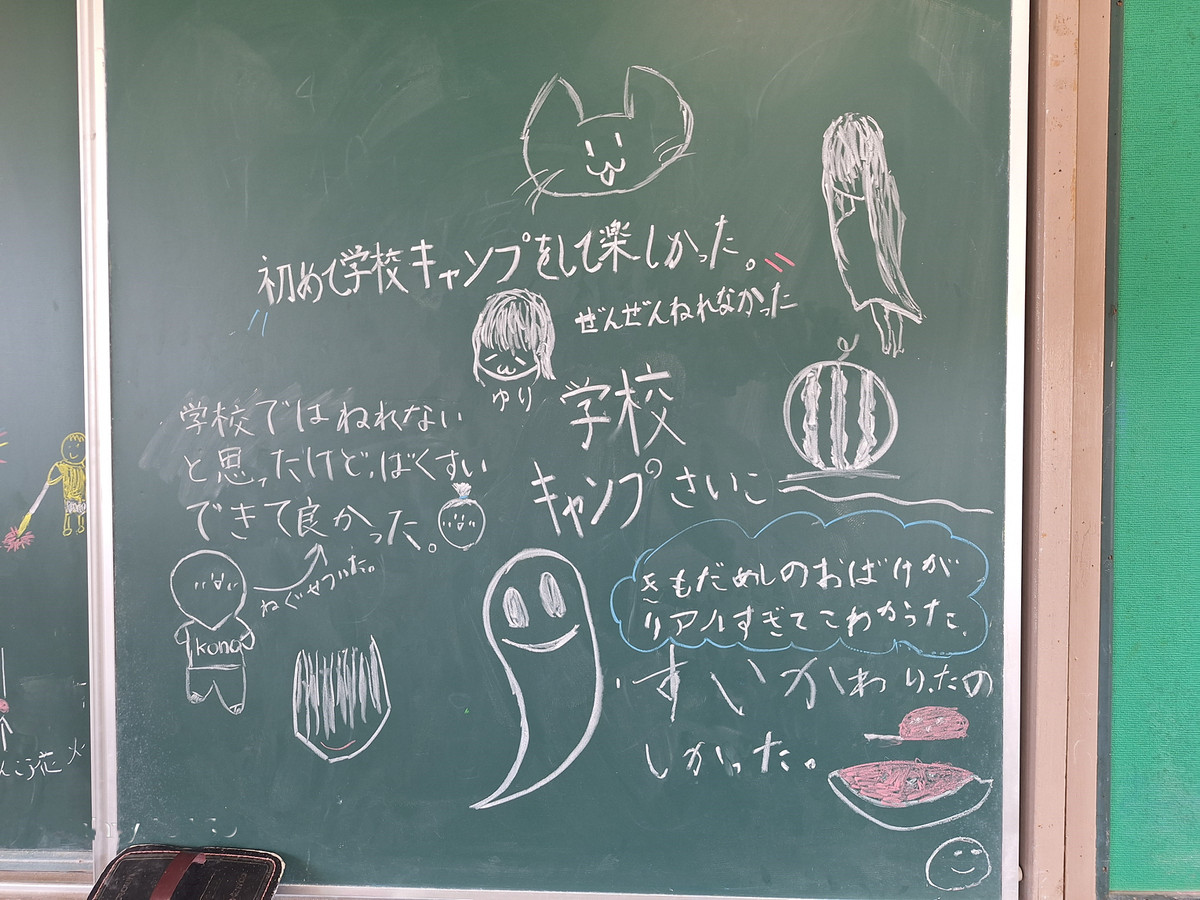 初めて学校キャンプをして楽しかった。
ぜんぜんねれなかった
ゆり
学校
キャンプさいこ
学校ではねれない
と思ったけど、ばくすい
できて良かった。
ねぐせついた。
kono
きもだめしのおばけが
リアルすぎてこわかった。
すいかわりたの
しかった。
こう花火